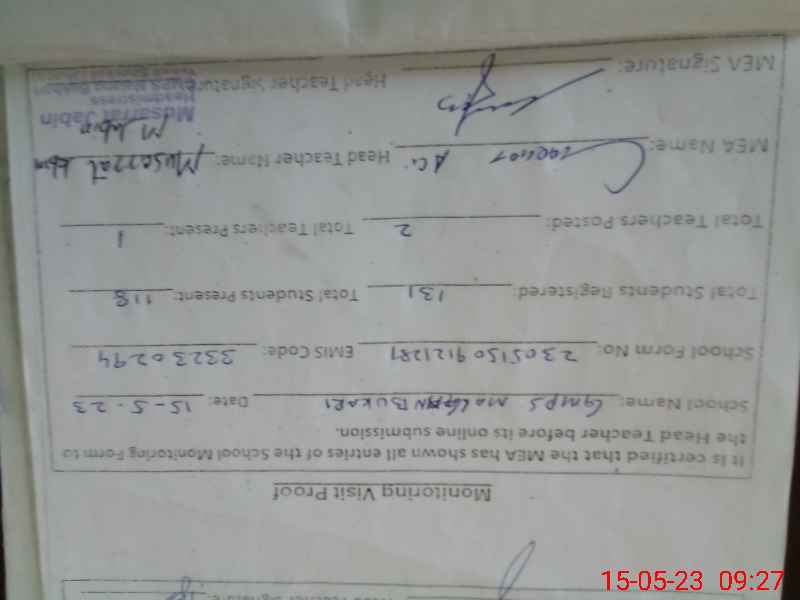 Monitoring Visit Proof
It is certified that the MEA has shown all entries of the School Monitoring Form to
the Head Teacher before its online submission.
School Name: GMPS BUKARI Date: 15-5-23
School Form No: 2305150912128 EMIS Code: 33230294
Total Students Registered: 131 Total Students Present: 118
Total Teachers Posted: 2 Total Teachers Present: 1
MEA Name: Ali Head Teacher Name: Musarrat
MEA Signature: Head Teacher Signature:
M. Jabin
Musarrat Jabin
Headmistress
15-05-23 09:27